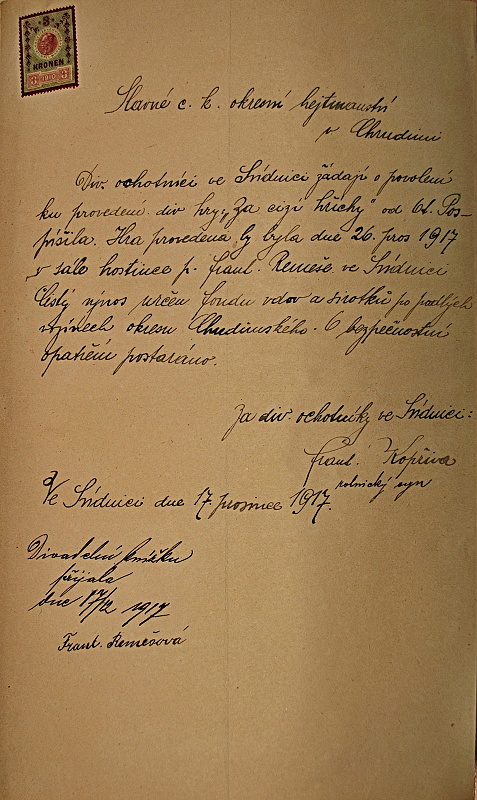 3
KRONEN
3 1910 3
Slavné c. k. okresní hejtmanství
v Chrudimi
Div. ochotníci ve Svídnici žádají o povolení
ku provedení div hry „Za cizí hříchy" od Al. Pos-
píšila. Hra provedena by byla dne 26. pros 1917
v sále hostince p. Frant. Remeše ve Svídnici
Čistý výnos určen fondu vdov a sirotků po padlých
vojínech okresu Chrudimského. O bezpečnostní
opatření postaráno.
Za div. ochotníky ve Svídnici:
Frant. Kopřiva
rolnický syn
Ve Svídnici dne 17. prosince 1917.
Divadelní knížku
přijala
dne 17/12 1917
Frant. Remešová